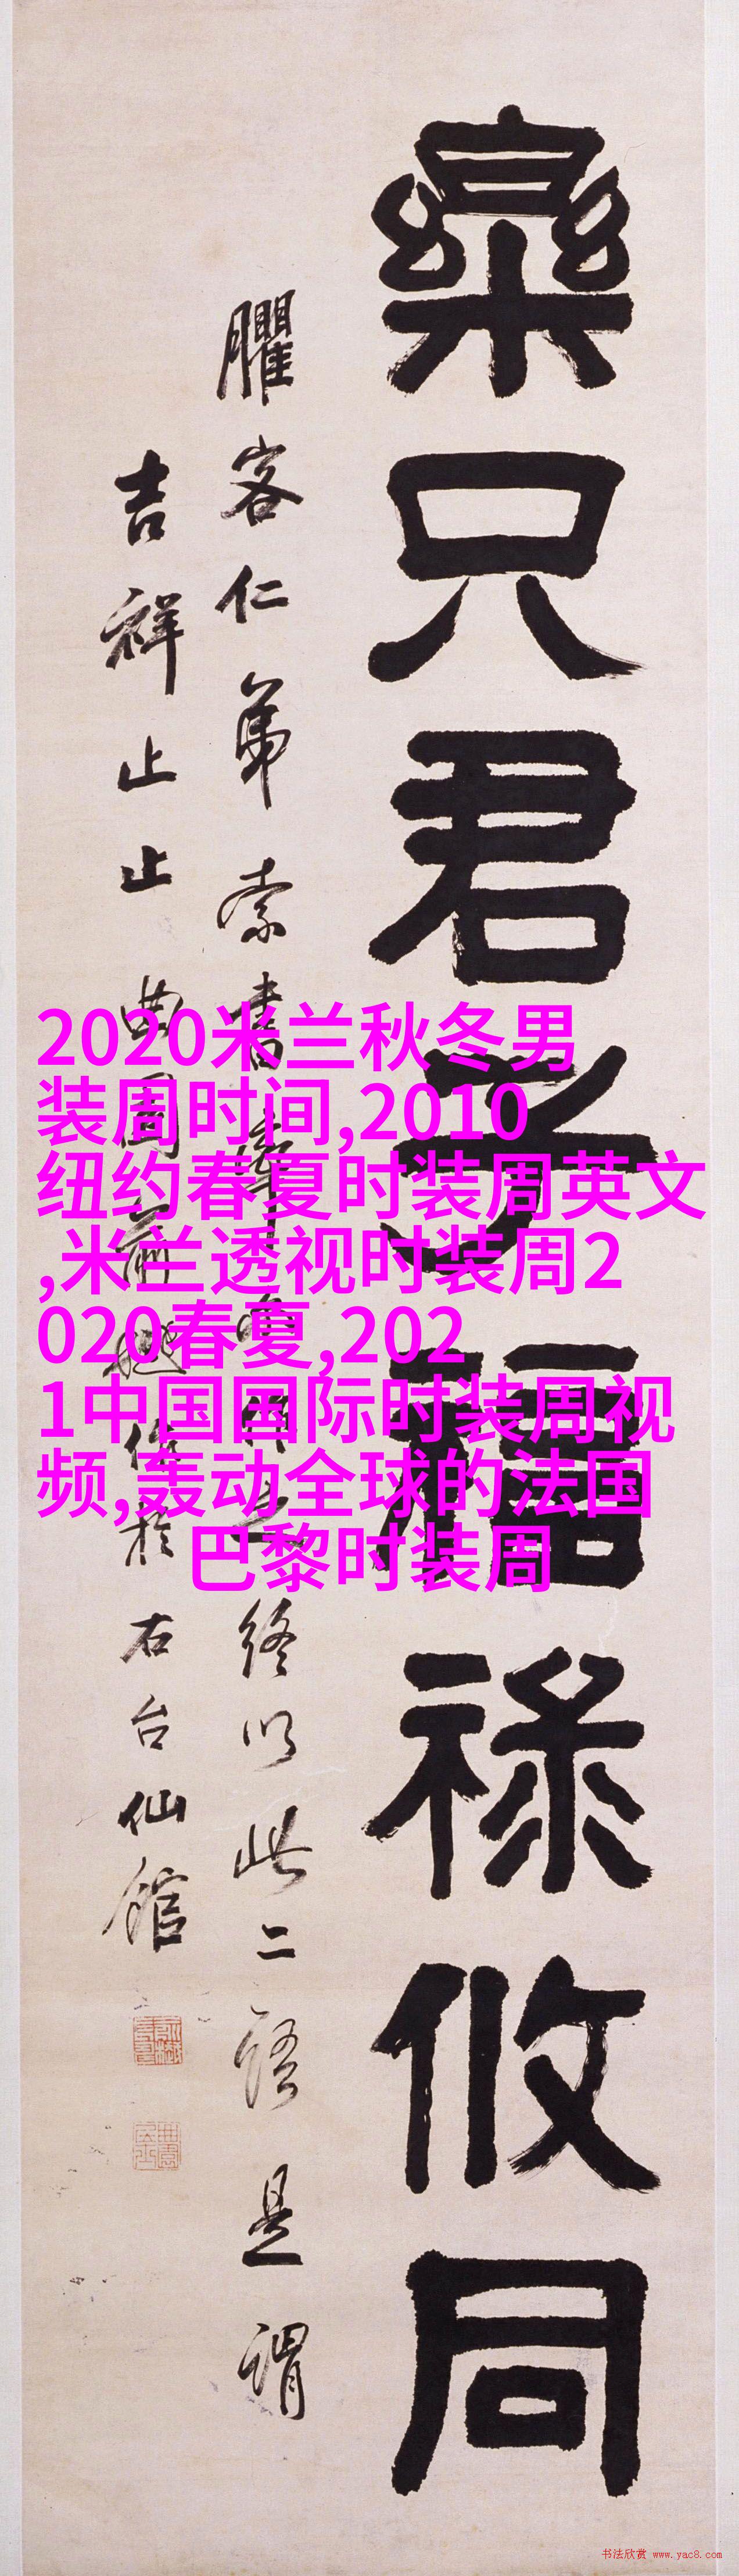 樂只君子福祿攸同
臞客仁弟索書
終以此二語是謂
吉祥止止曲園
於右台仙館
2020米兰秋冬男
装周时间,2010
纽约春夏时装周英文
,米兰透视时装周2
020春夏,202
1中国国际时装周视
频,轰动全球的法国
巴黎时装周
书法欣赏 www.yac8.com